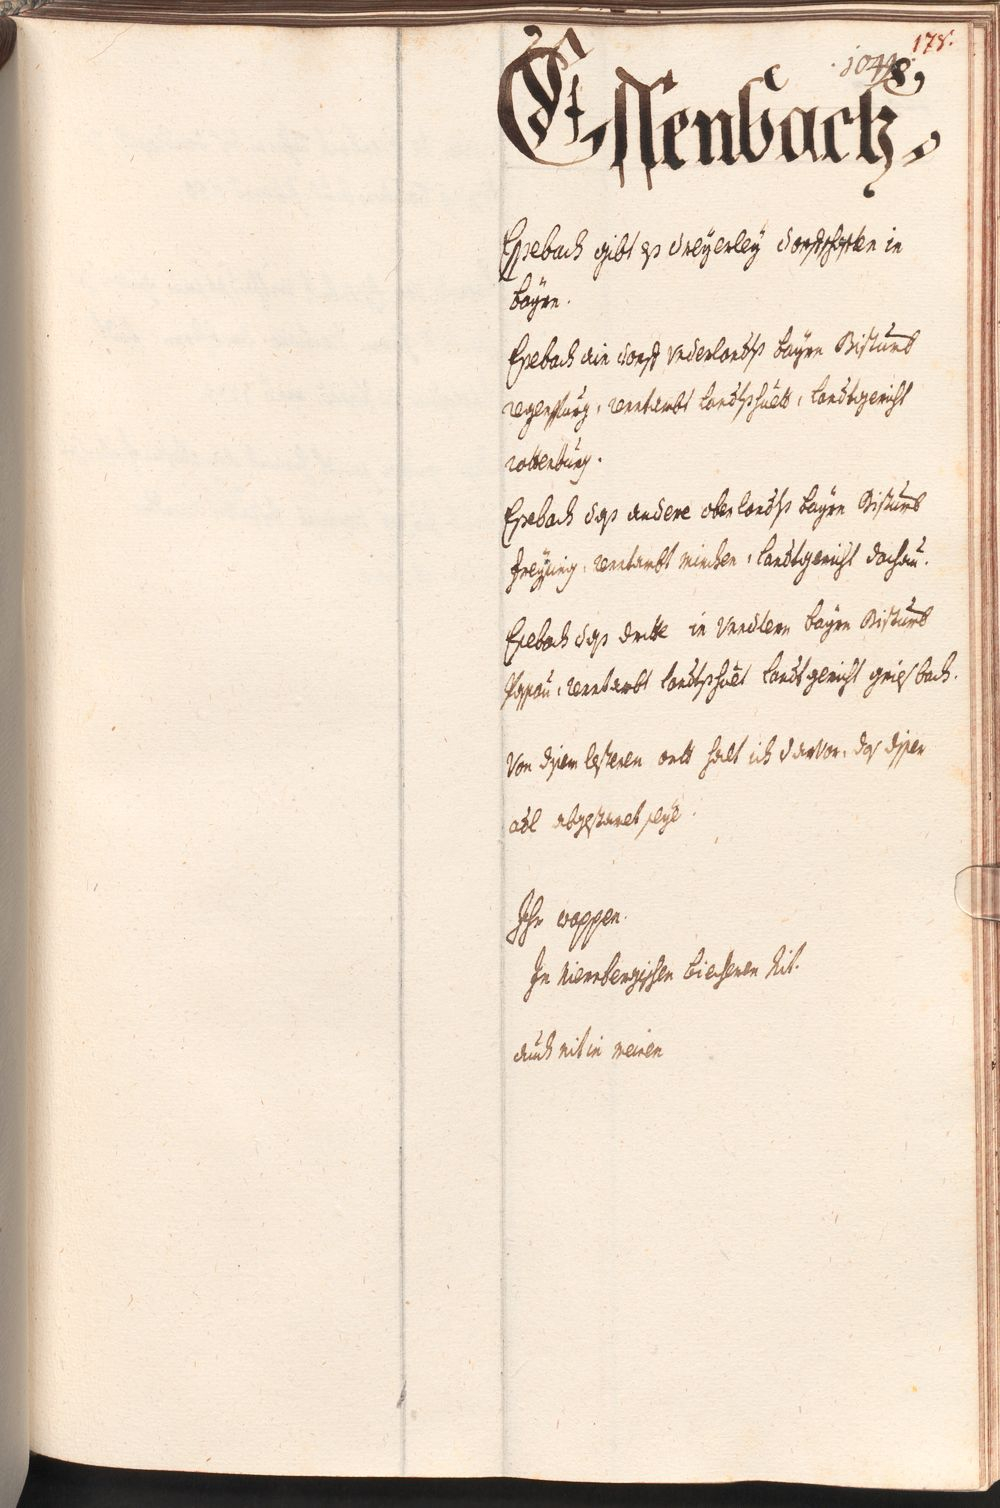 178.
Essenbach.
Essebach gibt es dreyerley dorfschafften in
bayrn.
Essebach ain dorff vnderlandtß bayrn Bistumb
regenspurg, rentambt landtßhuett, landtgericht
rottenburg.
Essebach das andere oberlandtß bayrn Bistumb
freysing, rentambt minchen, landtgericht dachau.
Essebach das dritte in vndern bayrn Bistumb
Passau, rentambt landtßhuet landtgericht griesbach.
Von disem lesteren ortt halt ich darvor, das diser
adl abgestorben seye.
Ihr wappen.
In Niernbergischen biecheren Nit.
auch nit in meinen